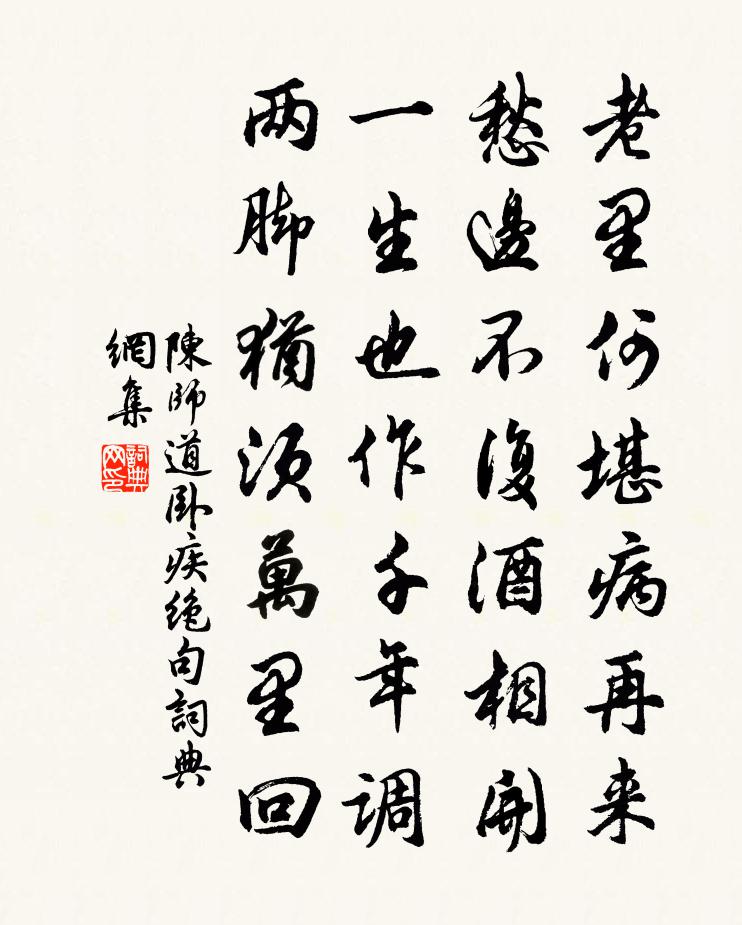 老里何堪病再来
愁邊不復酒相開
一生也作千年调
两脚猶須萬里回
陳師道卧疾绝句詞典
網集
詞典
网印